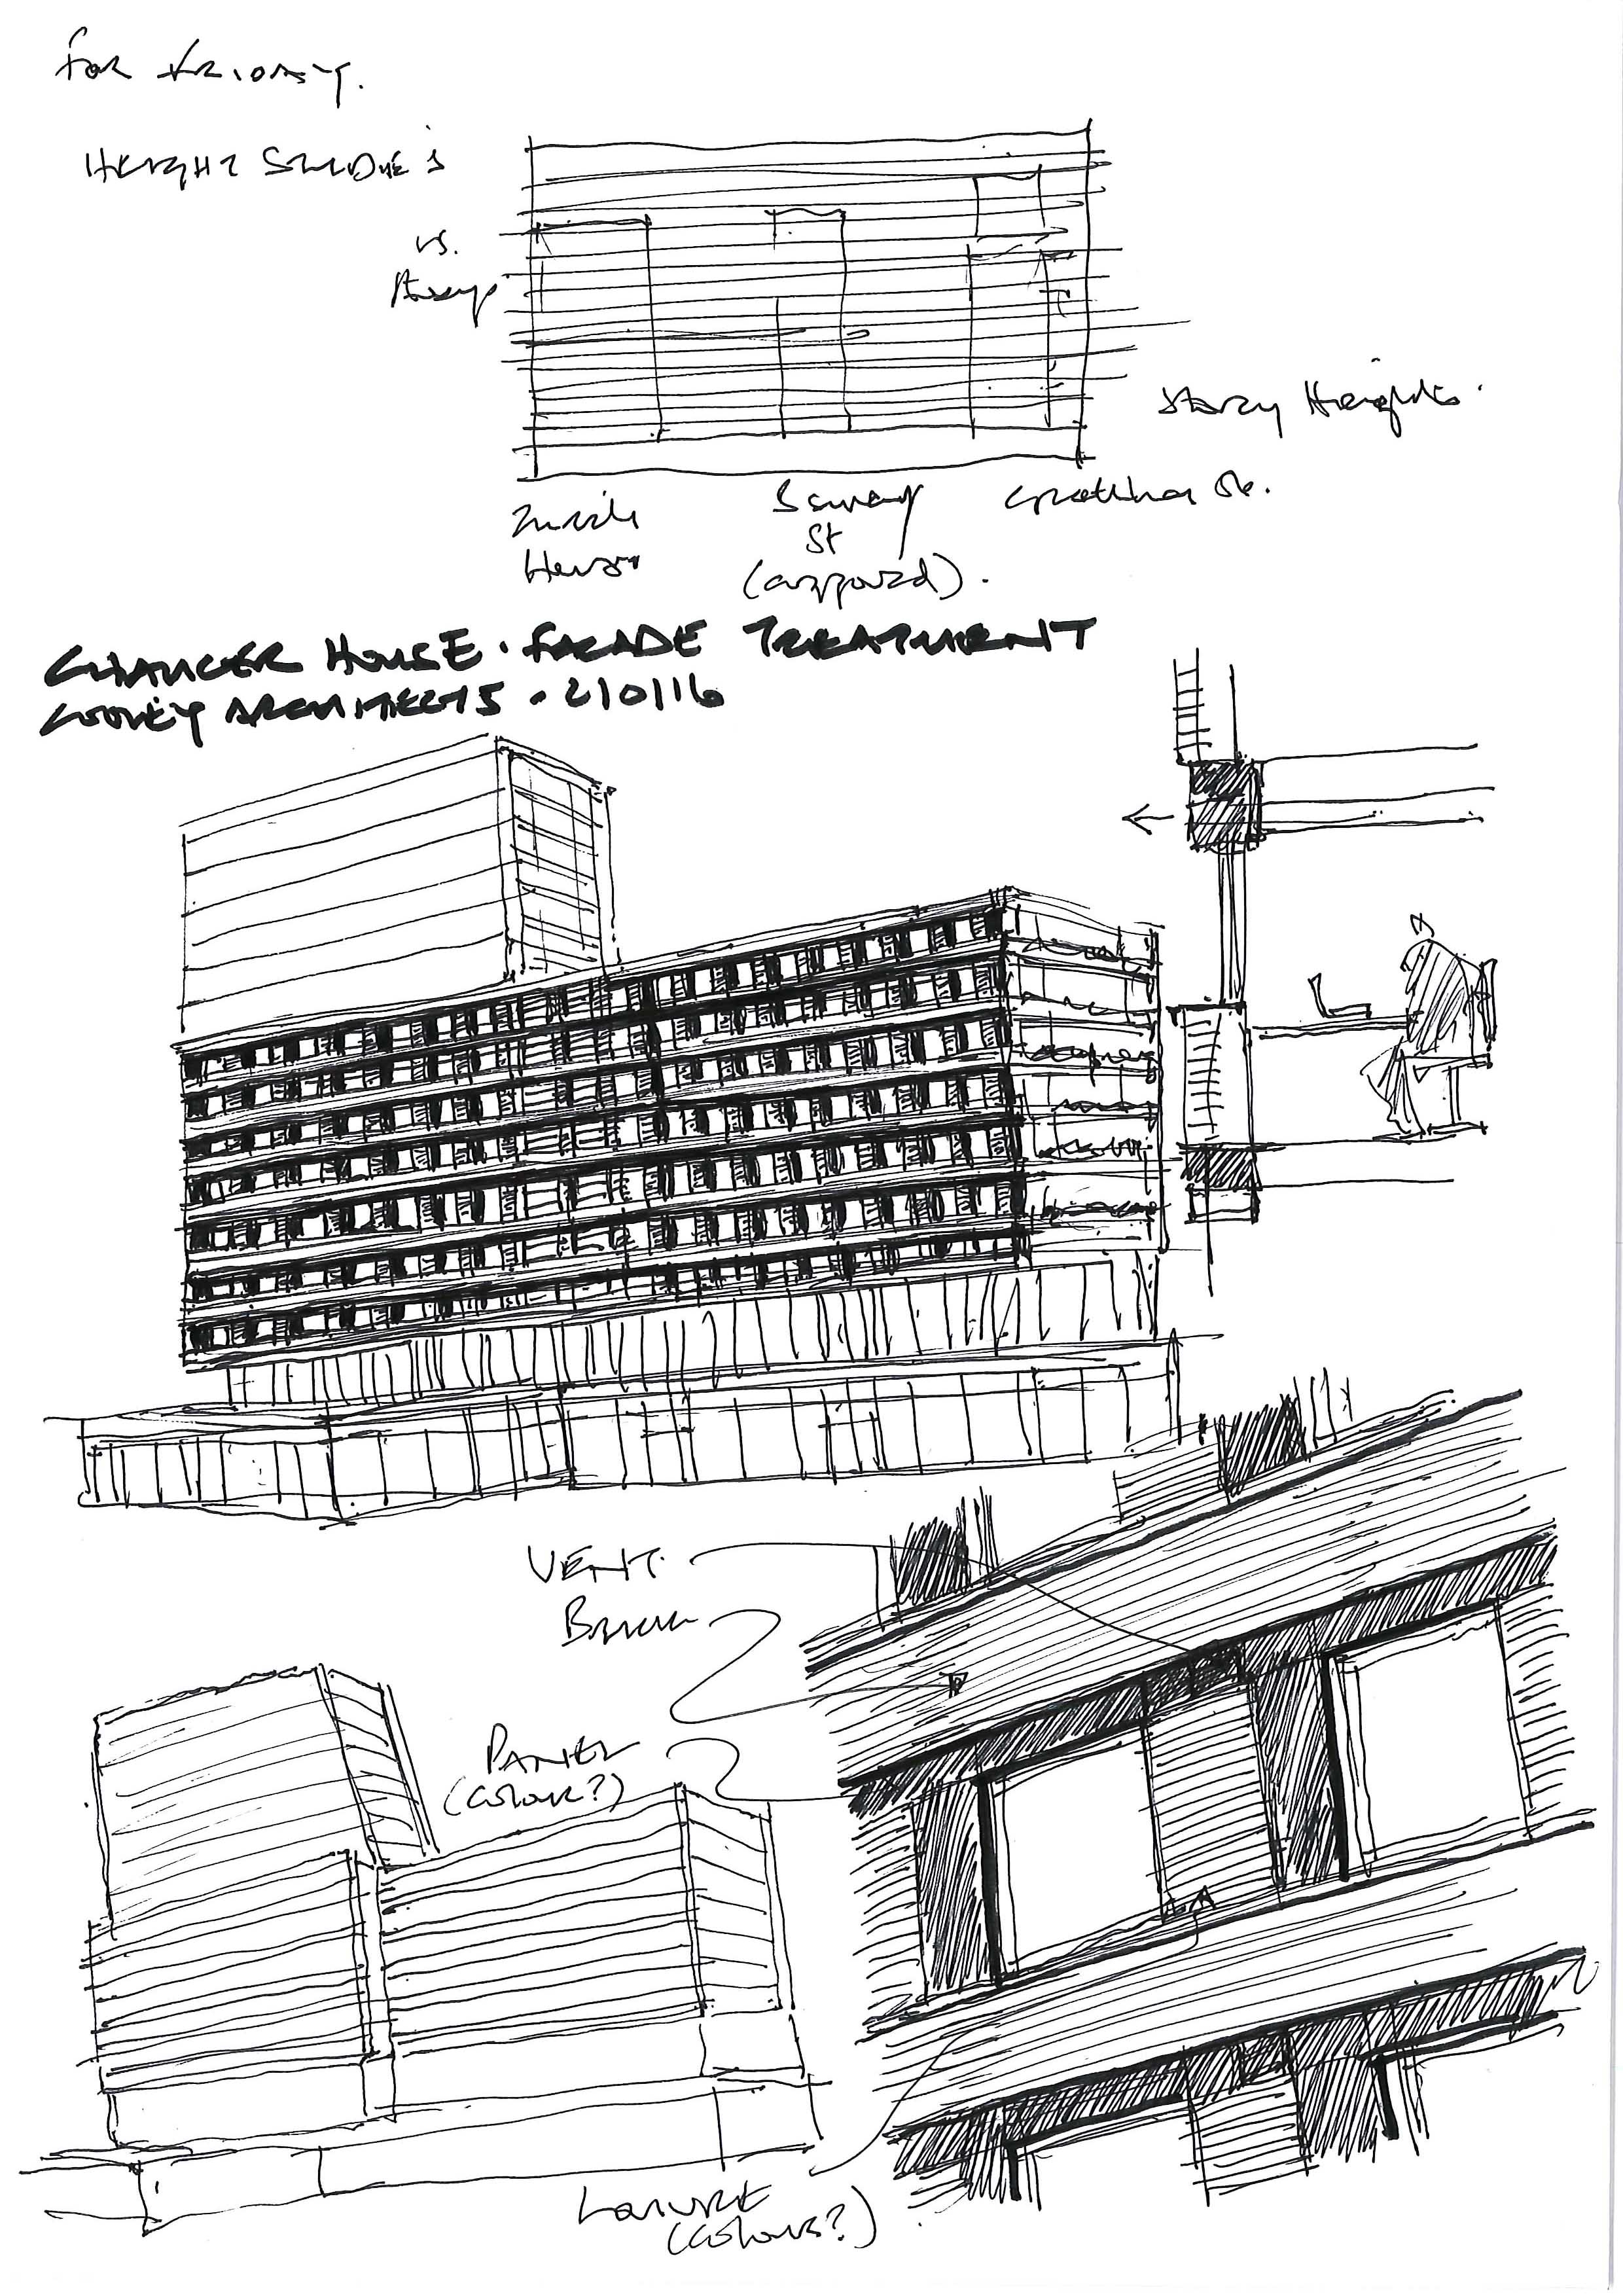 FOR FRIDAY.
HEIGHT STUDIES
vs.
Storey Heights.
House
St
(approved).
CHAUCER HOUSE. FACADE TREATMENT
COONEY ARCHITECTS. 210116
VENT.
BRICK
PANEL
(COLOUR?)
LOUVRE
(COLOUR?)